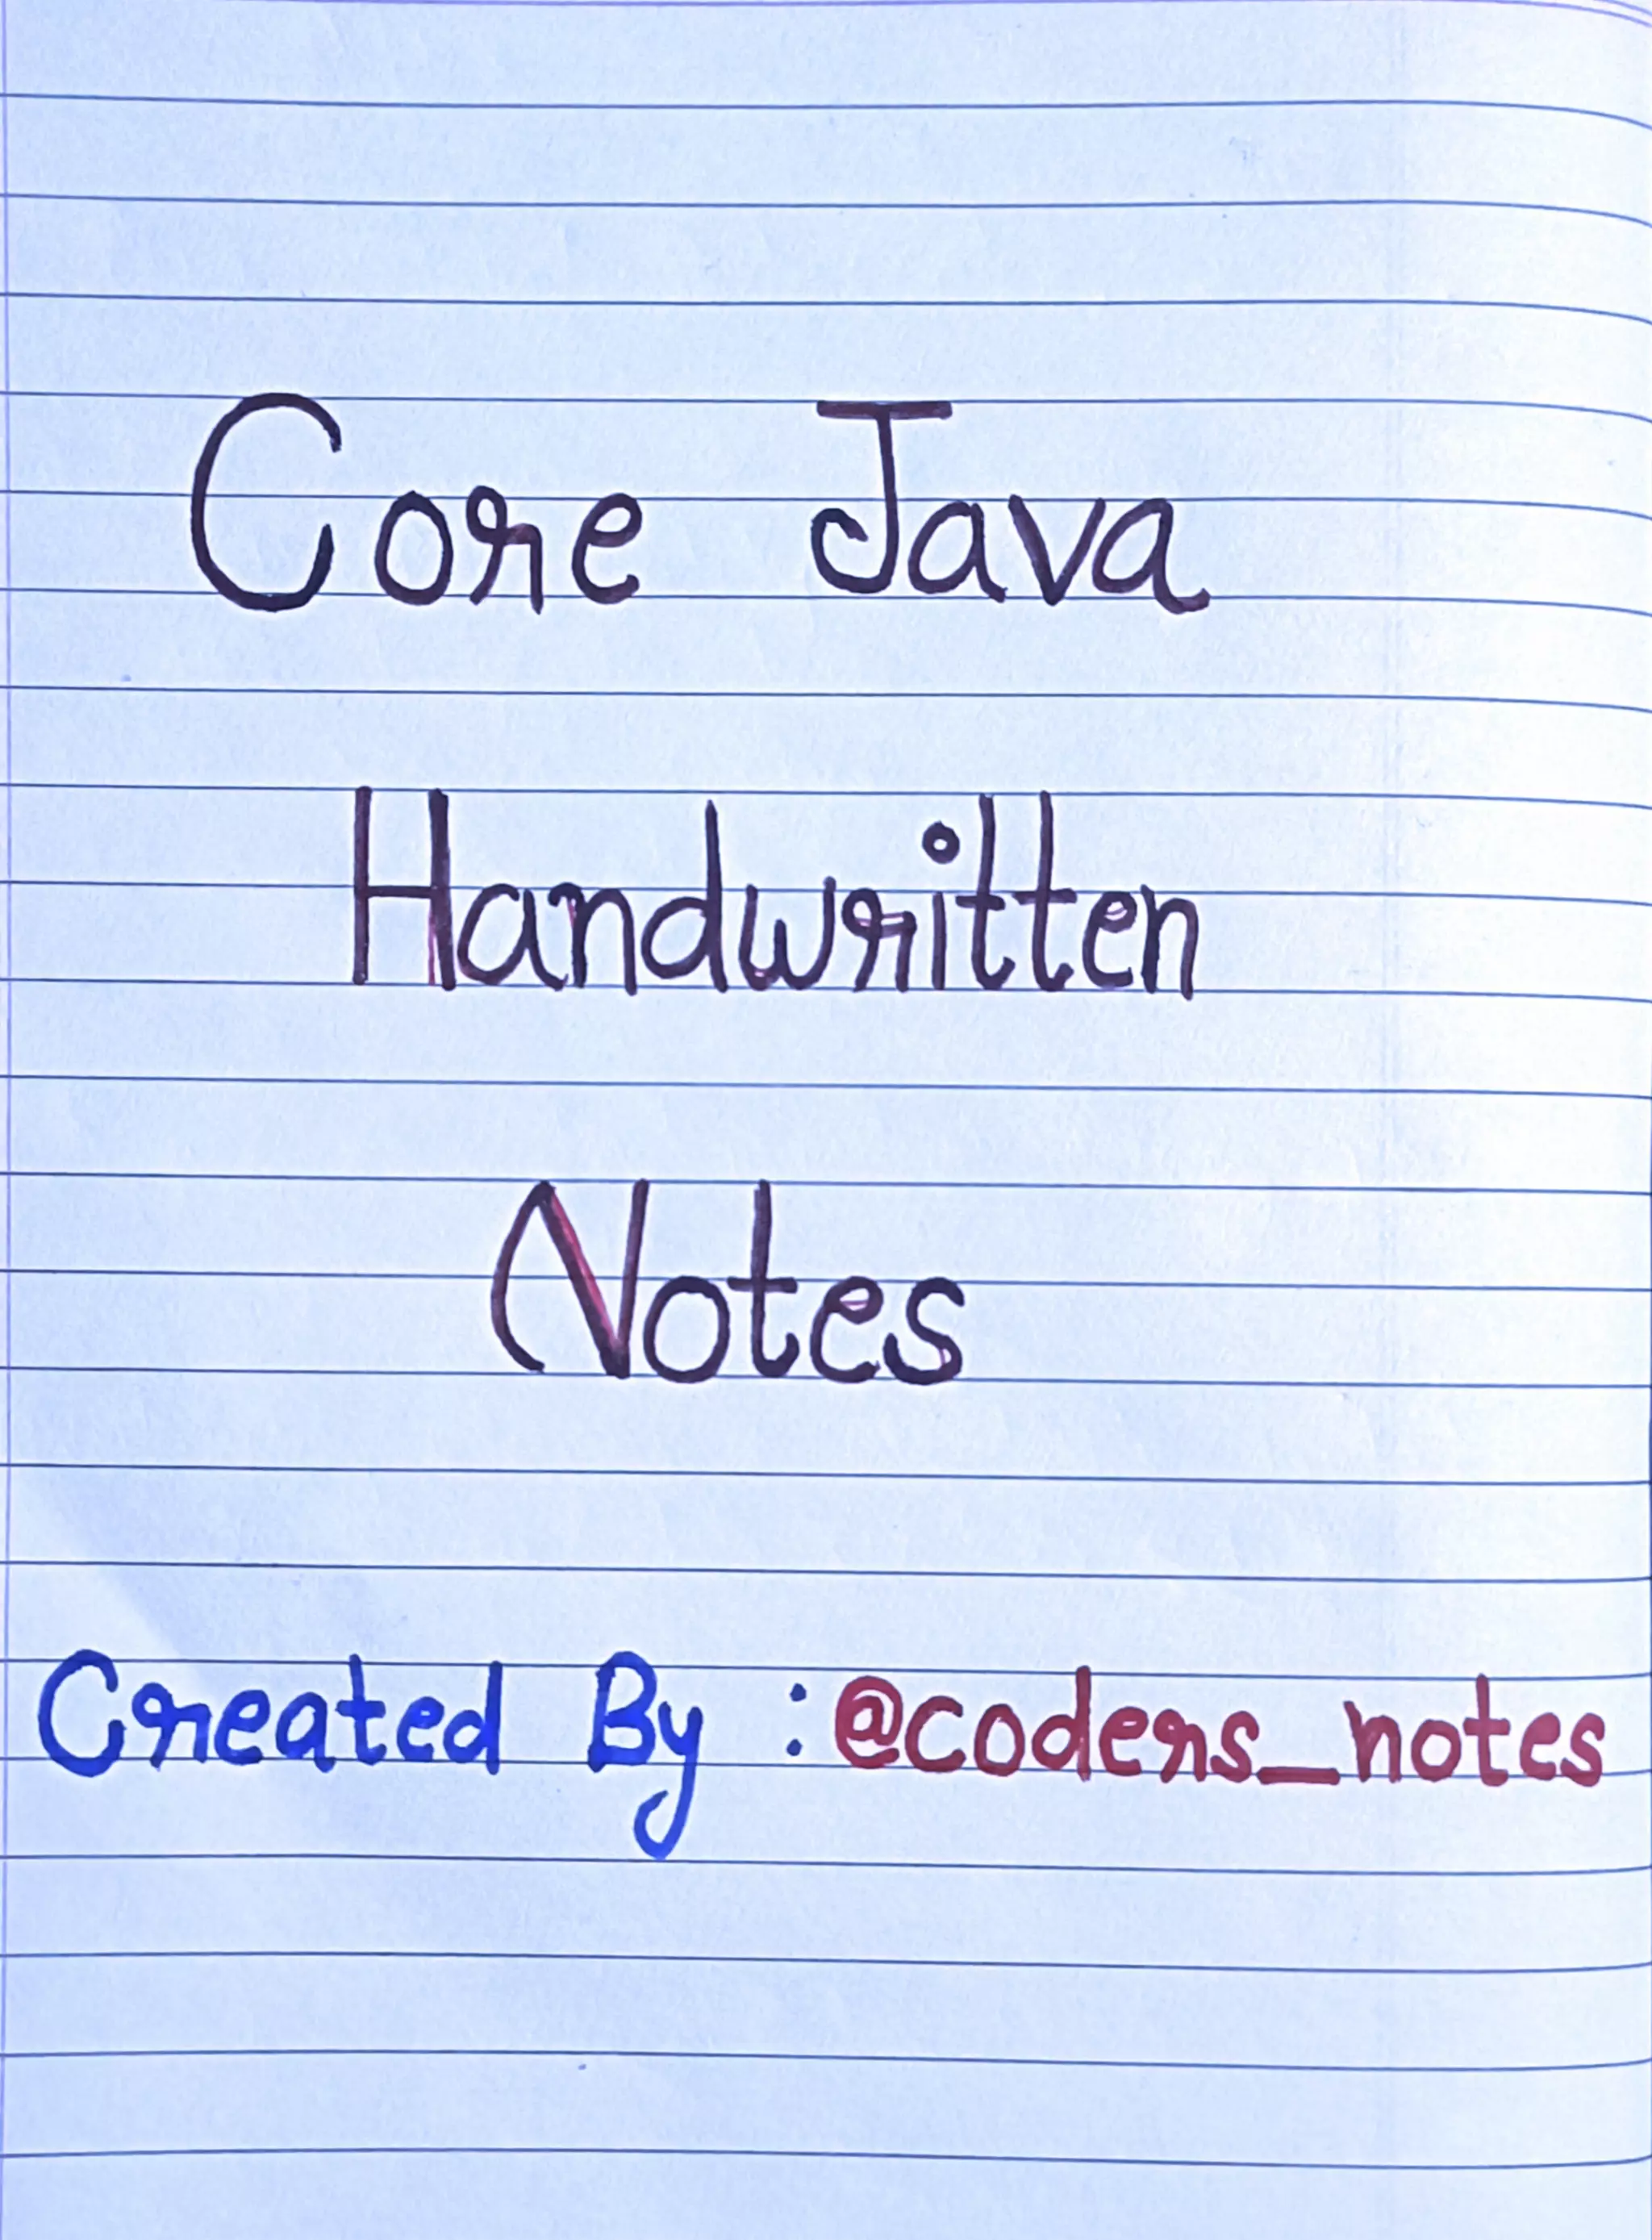 Core Java
Handwritten
Notes
Created By : @coders_notes